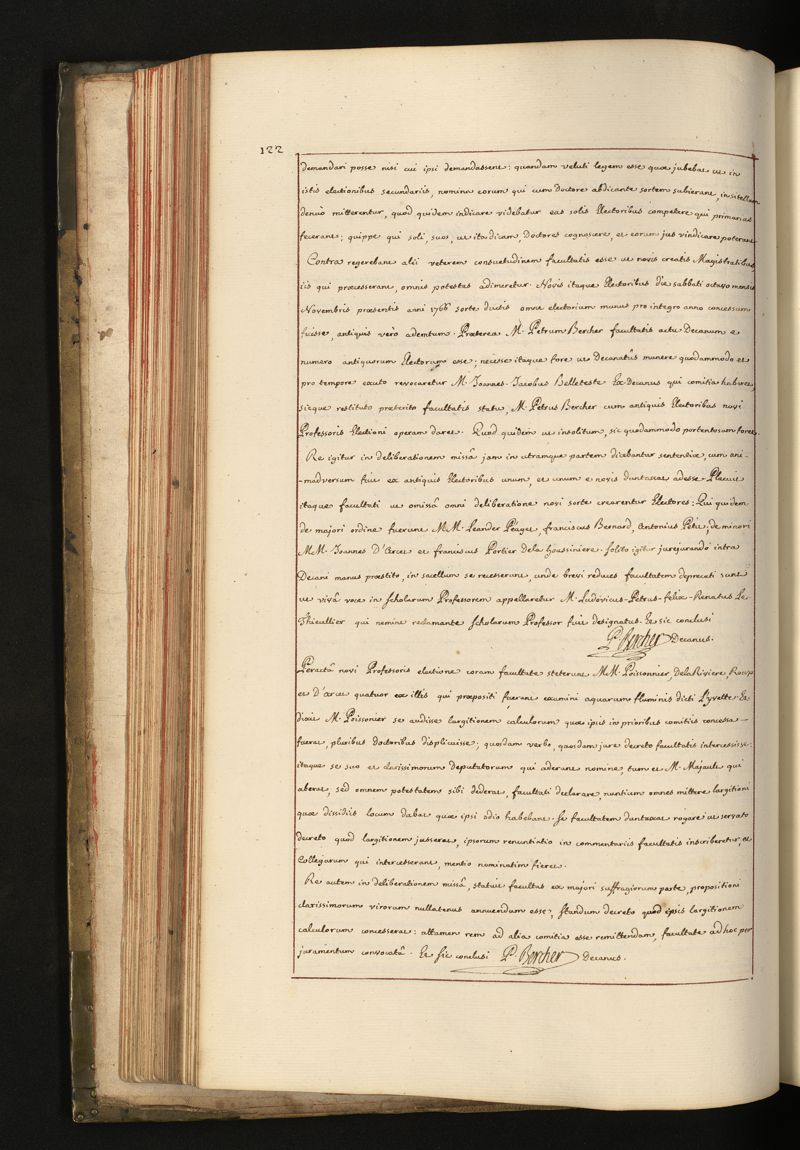 122
demandari posse nisi cui ipsi demandassent: quandam veluti legem esse quæ jubebat ut in
istis electionibus secundariis, nomina eorum qui cum Doctore abdicante sortem subierant, in sitellam
denuò mitterentur, quod quidem indicare videbatur eas solis Electoribus competere qui primarias
fecerant; quippe qui soli, suos, ut ita dicam, Doctores cognoscere, et eorum jus vindicare poterant
Contra regerebant alii veterem consuetudinem facultatis esse ut novis creatis Magistratibus
iis qui præcesserant, omnis potestas adimeretur. Novis itaque Electoribus die sabbati octavo mensis
Novembris præsentis anni 1766 sorte ductis omne electorium munus pro integro anno concessum
fuisse, antiquis verò ademtum. Præterea M. Petrum Bercher facultatis actu Decanum e
numero antiquorum Electorum esse; necesse itaque fore ut Decanatûs munere quodammodo et
pro tempore exuto revocaretur M. Joannes-Jacobus Belleteste Ex-Decanus qui comitia haberet,
sicque restituto præterito facultatis statu, M. Petrus Bercher cum antiquis Electoribus novi
Professoris Electioni operam daret. Quod quidem ut insolitum, sic quodammodo portentosum foret.
Re igitur in deliberationem missâ jam in utramque partem dicebantur sententiæ, cum ani-
-madversum fuit ex antiquis Electoribus unum, et unum e novis duntaxat adesse. Placuit
itaque facultati ut omissâ omni deliberatione novi sorte crearentur Electores: Qui quidem
de majori ordine fuerunt MM. Leander Peaget, franciscus Bernard, Antonius Petit; de minori
MM. Joannes D'arcet et franciscus Portier de la houssiniere. solito igitur jurejurando intra
Decani manus præstito, in sacellum se recesserunt, unde brevi reduces facultatem deprecati sunt
ut vivâ voce in scholarum Professorem appellaretur M. Ludovicus-Petrus-felix-Renatus Le
Thieullier qui nemine reclamante scholarum Professor fuit designatus. Et sic conclusi
P. Bercher Decanus.
Peractâ novi Professoris electione coram facultate steterunt MM. Poissonnier, De la Riviere, Roux
et D'arcet quatuor ex illis qui præpositi fuerant examini aquarum fluminis dicti Lyvette. Et
dixit M. Poissonier se audisse largitionem calculorum quæ ipsis in prioribus comitiis concessa
fuerat, pluribus doctoribus displicuisse; quosdam verbo, quosdam jure decreto facultatis intercessisse:
itaque se suo et clarissimorum deputatorum qui aderant nomine, tum et M. Majault qui
aberat, sed omnem potestatem sibi dederat, facultati declarare, nuntium omnes mittere largitioni
quæ dissidiis locum dabat quæ ipsi odio habebant. Se facultatem duntaxat rogare ut servato
decreto quod largitionem jusserat, ipsorum renuntiatio in commentariis facultatis inscriberetur, et
Collegarum qui intercesserant, mentio nominatim fieret.
Re autem in deliberationem missâ, statuit facultas ex majori suffragiorum parte, propositioni
clarissimorum virorum nullatenus annuendum esse, standum decreto quod ipsis largitionem
calculorum concesserat: attamen rem ad alia comitia esse remittendam, facultate ad hoc per
juramentum convocatâ. Et sic conclusi P. Bercher Decanus.